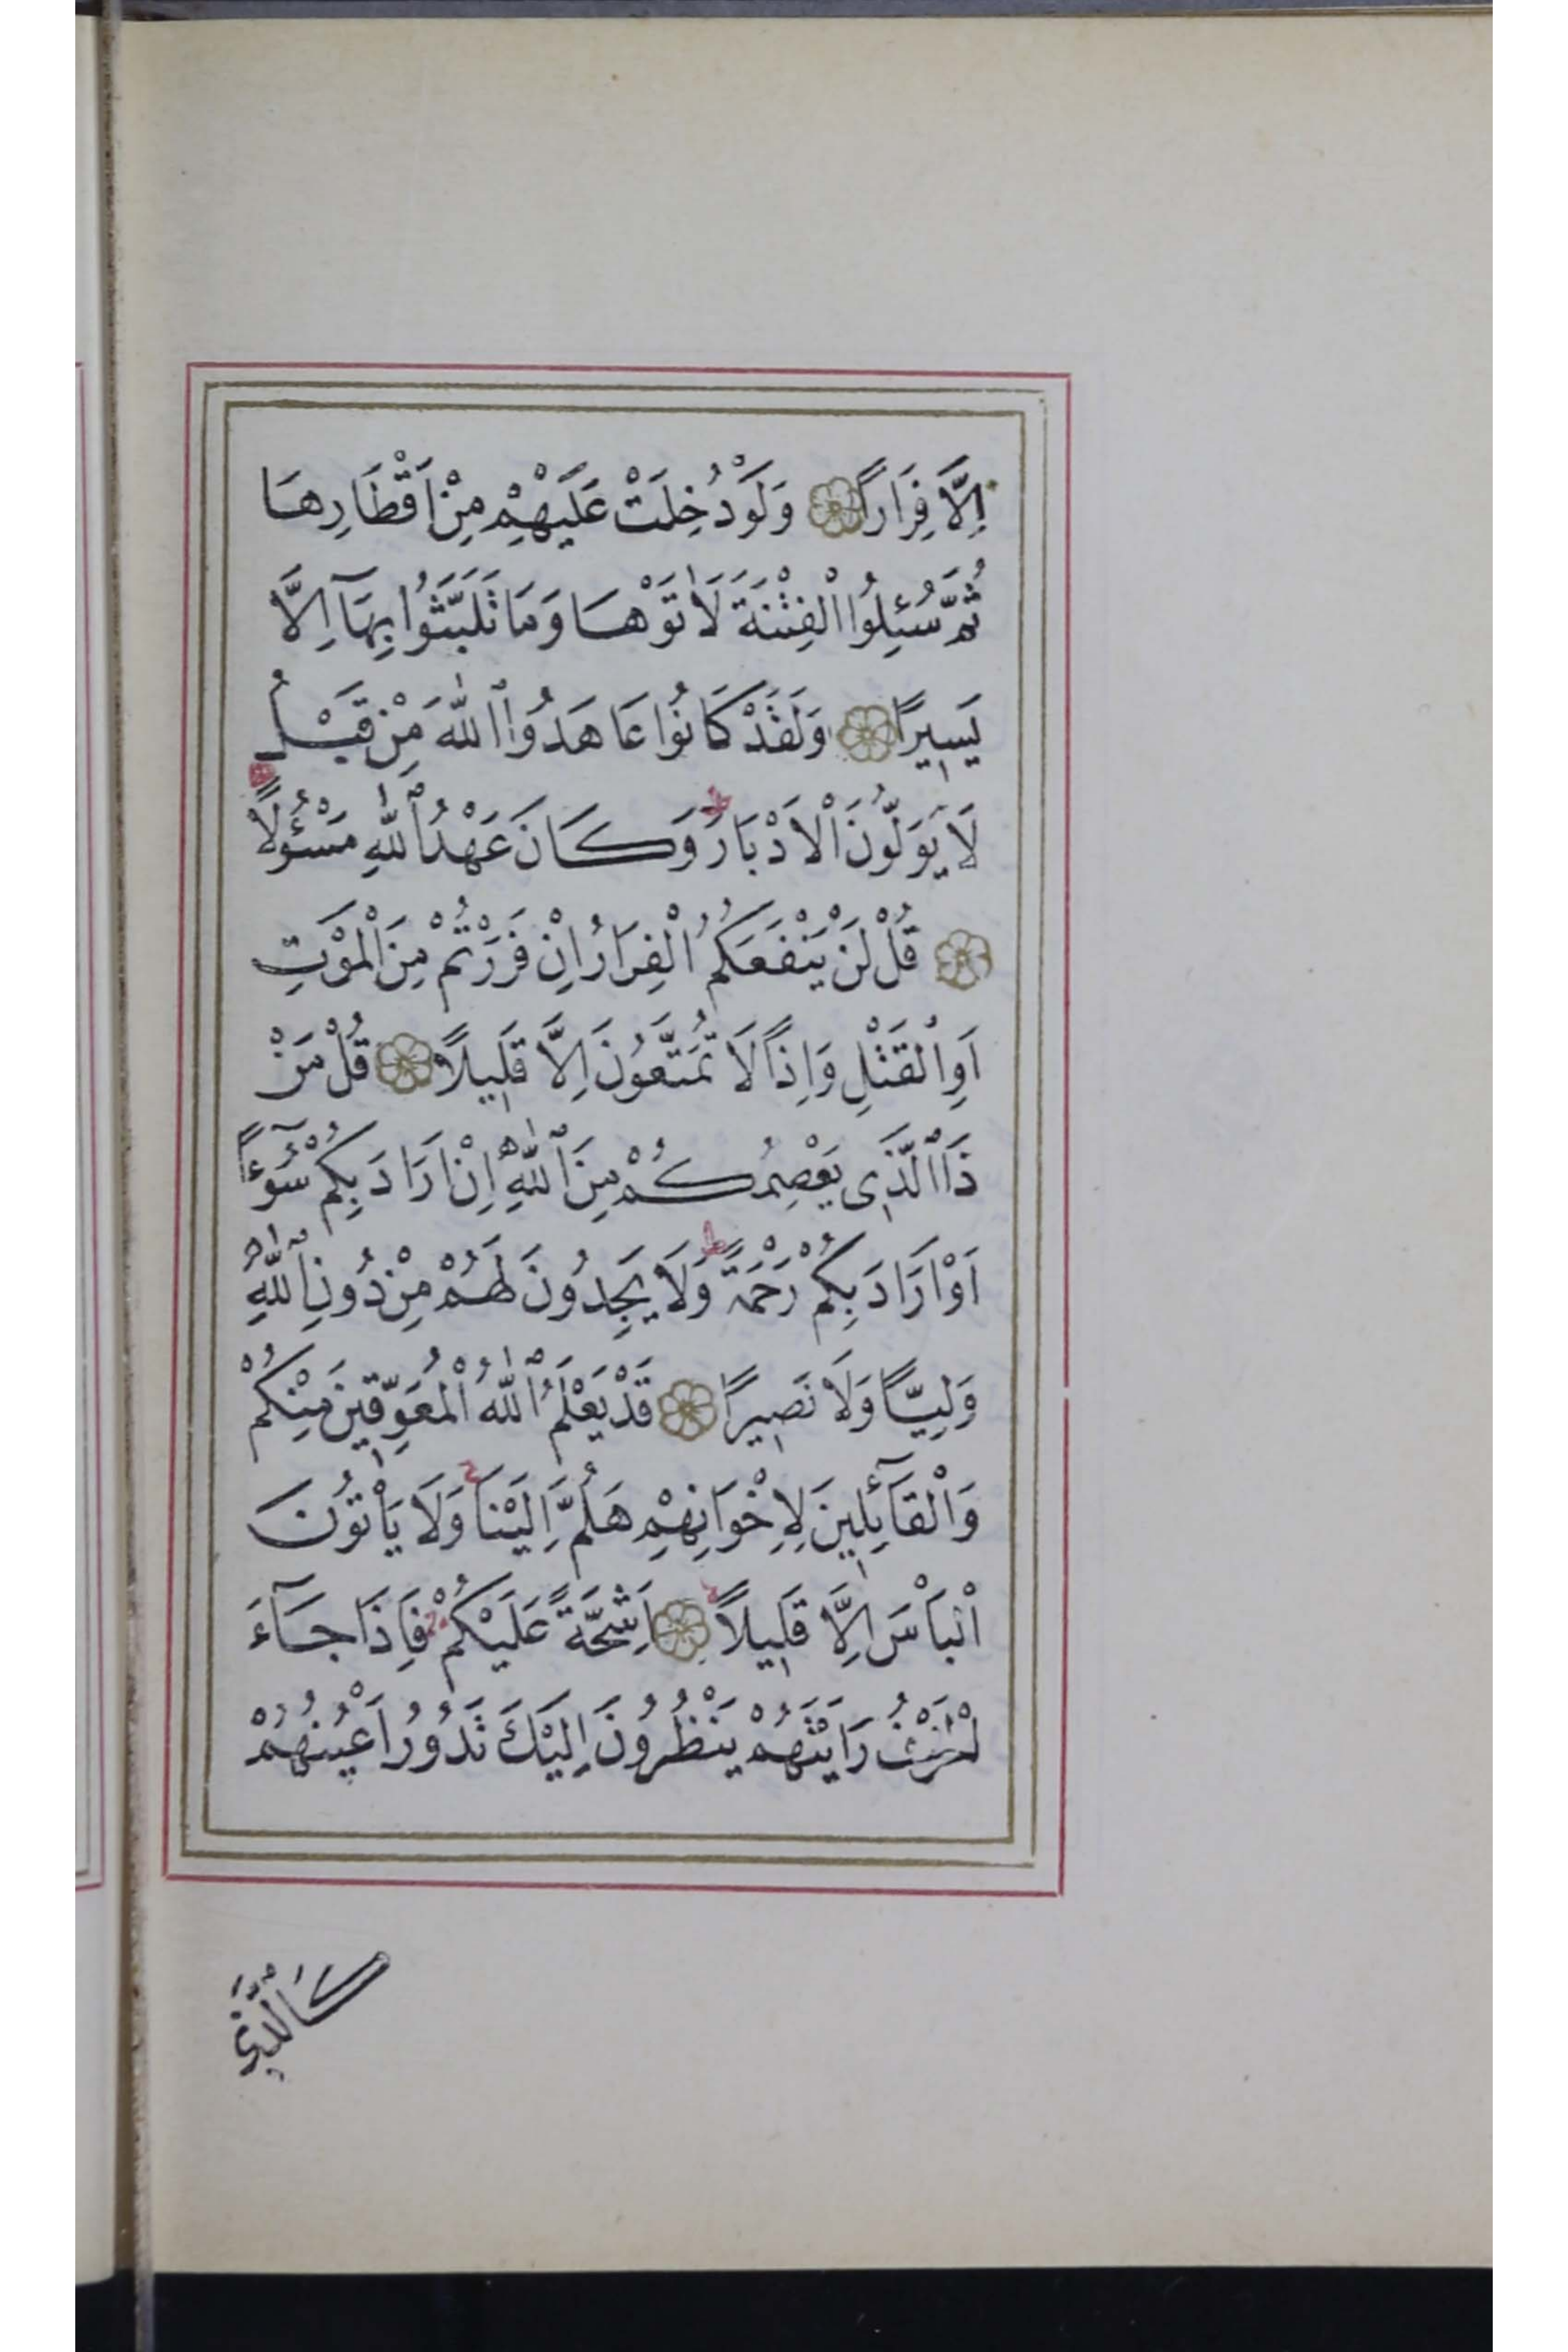 اِلَّا فِرَارًا وَلَوْ دُخِلَتْ عَلَيْهِمْ مِنْ اَقْطَارِهَا
ثُمَّ سُئِلُوا الْفِتْنَةَ لَاٰتَوْهَا وَمَا تَلَبَّثُوا بِهَآ اِلَّا
يَسِيرًا وَلَقَدْ كَانُوا عَاهَدُوا اللّٰهَ مِنْ قَبْلُ
لَا يُوَلُّونَ الْاَدْبَارَ وَكَانَ عَهْدُ اللّٰهِ مَسْؤُلًا
قُلْ لَنْ يَنْفَعَكُمُ الْفِرَارُ اِنْ فَرَرْتُمْ مِنَ الْمَوْتِ
اَوِ الْقَتْلِ وَاِذًا لَا تُمَتَّعُونَ اِلَّا قَلِيلًا قُلْ مَنْ
ذَا الَّذِى يَعْصِمُكُمْ مِنَ اللّٰهِ اِنْ اَرَادَ بِكُمْ سُٓوءًا
اَوْ اَرَادَ بِكُمْ رَحْمَةً ط وَلَا يَجِدُونَ لَهُمْ مِنْ دُونِ اللّٰهِ
وَلِيًّا وَلَا نَصِيرًا قَدْ يَعْلَمُ اللّٰهُ الْمُعَوِّقِينَ مِنْكُمْ
وَالْقَآئِلِينَ لِاِخْوَانِهِمْ هَلُمَّ اِلَيْنَا ج وَلَا يَاْتُونَ
الْبَاْسَ اِلَّا قَلِيلًا اَشِحَّةً عَلَيْكُمْ فَاِذَا جَآءَ
الْخَوْفُ رَاَيْتَهُمْ يَنْظُرُونَ اِلَيْكَ تَدُورُ اَعْيُنُهُمْ
كَالَّذِى